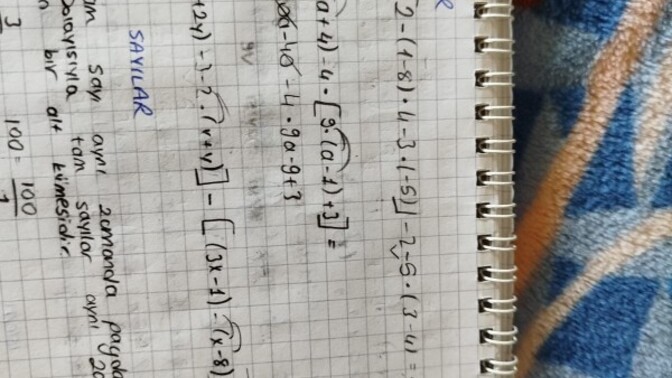 R
2-(1-8)·4-3·(-5)]-2-5·(3-4)=
a+4)-4·[9·(a-1)+3]=
-40-4·9a-9+3
+2y)-2-2·(x+y)]-[(3x-1)-(x-8)
SAYILAR
sayı aynı zamanda payda
Dolayısıyla tam sayılar aynı
bir alt kümesidir.
3
100=100
1